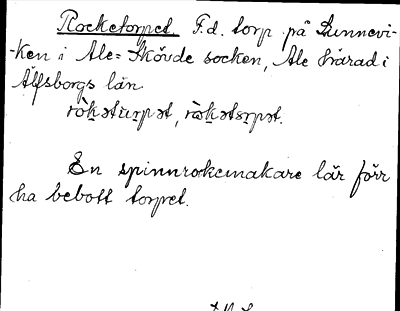 Rocketorpet. F.d. torp på Sunnevi-
-ken i Ale-Skövde socken, Ale härad i
Älfsborgs län.
En spinnrockmakare lär förr
ha bebott torpet.